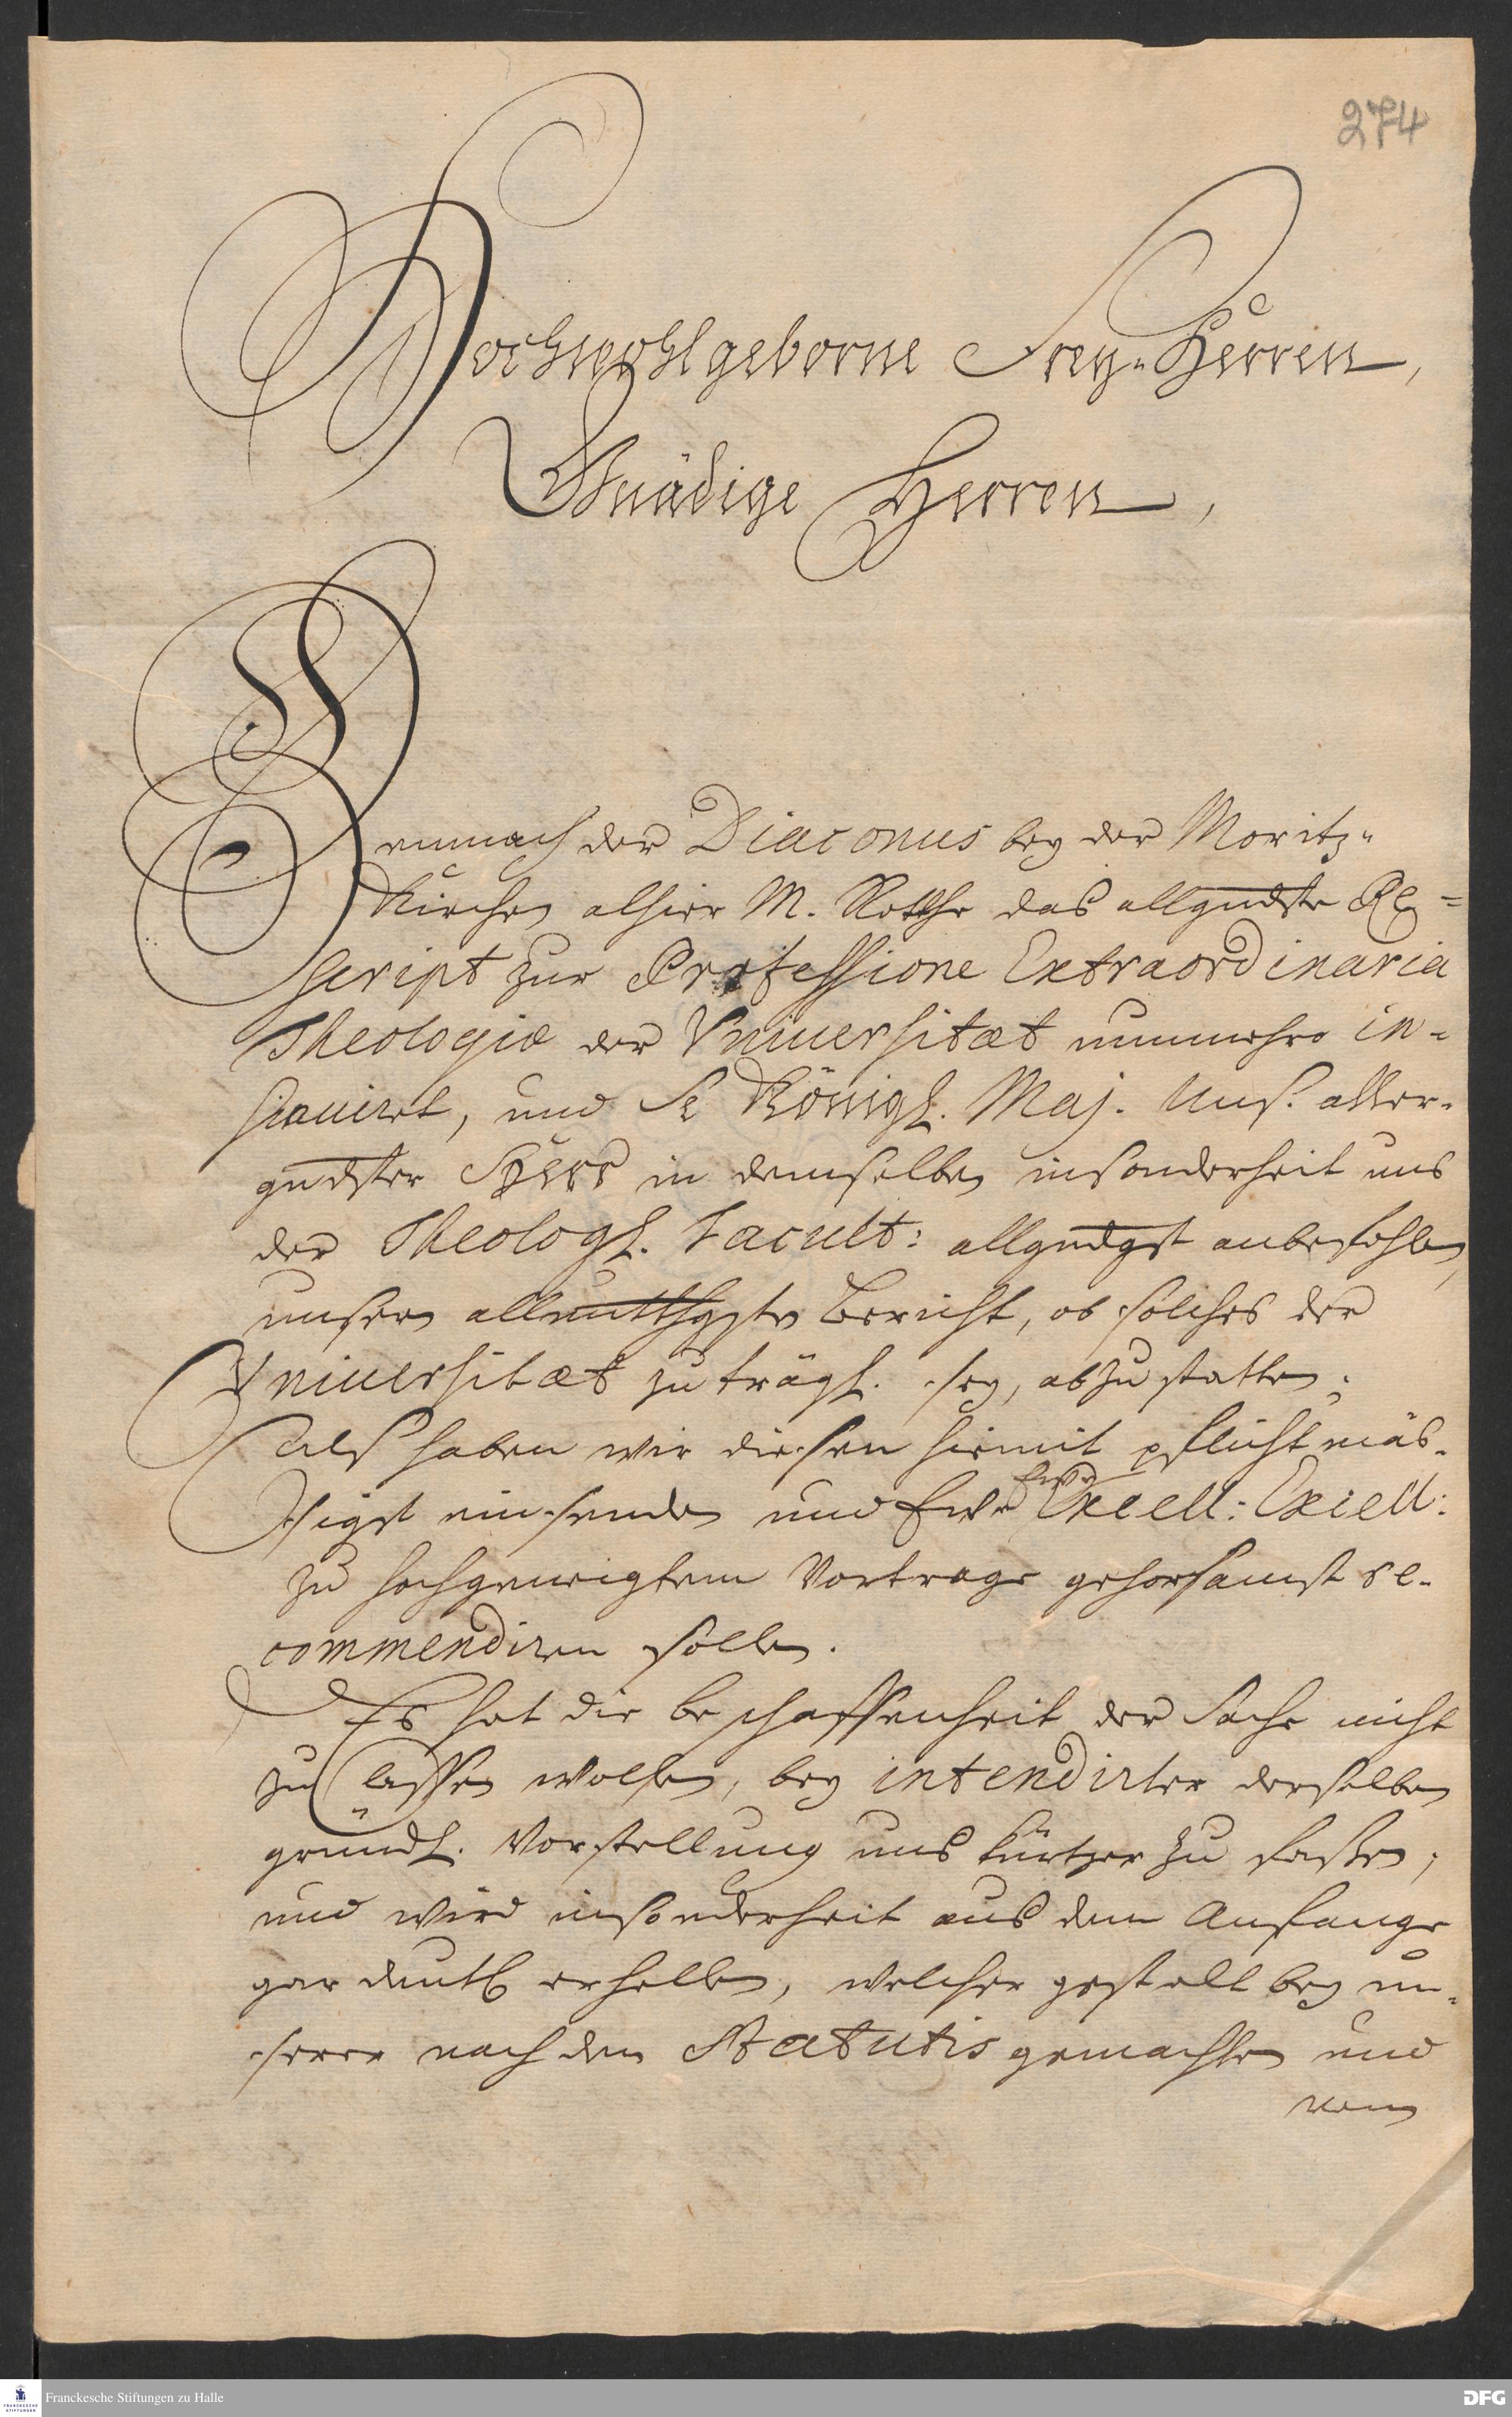 274
Hochwohlgeborne Frey-Herren,
Gnädige Herren,
Demnach der Diaconus bey der Moritz-
Kirchen alhier M. Rothe das allgndste Re=
script zur Professione Extraordinaria
Theologiæ der Vniuersitæt nunmehro in-
sinuiret, und Se Königl. Maj. Uns. aller-
gndster Herr in demselben insonderheit uns
der Theologl. Facult: allgndgst anbefohlen,
unsern allerutthgsten Bericht, ob solches der
Vniuersitæt zuträgl. sey, abzustatten;
Alß haben wir diesen hiemit pflichtmäs-
sigst einsenden und Ewr Excell: Excell:
zu hochgeneigtem Vortrage gehorsamst re-
commendiren sollen.
Es hat die Beschaffenheit der Sache nicht
zu lassen wollen, bey intendirter derselben
gründl. Vorstellung uns kürtzer zu faßen;
und wird insonderheit aus dem Anfange
gar deutl erhellen, welcher gestalt bey un-
serer nach den Statutis gemachten und
vom
Franckesche Stiftungen zu Halle
DFG